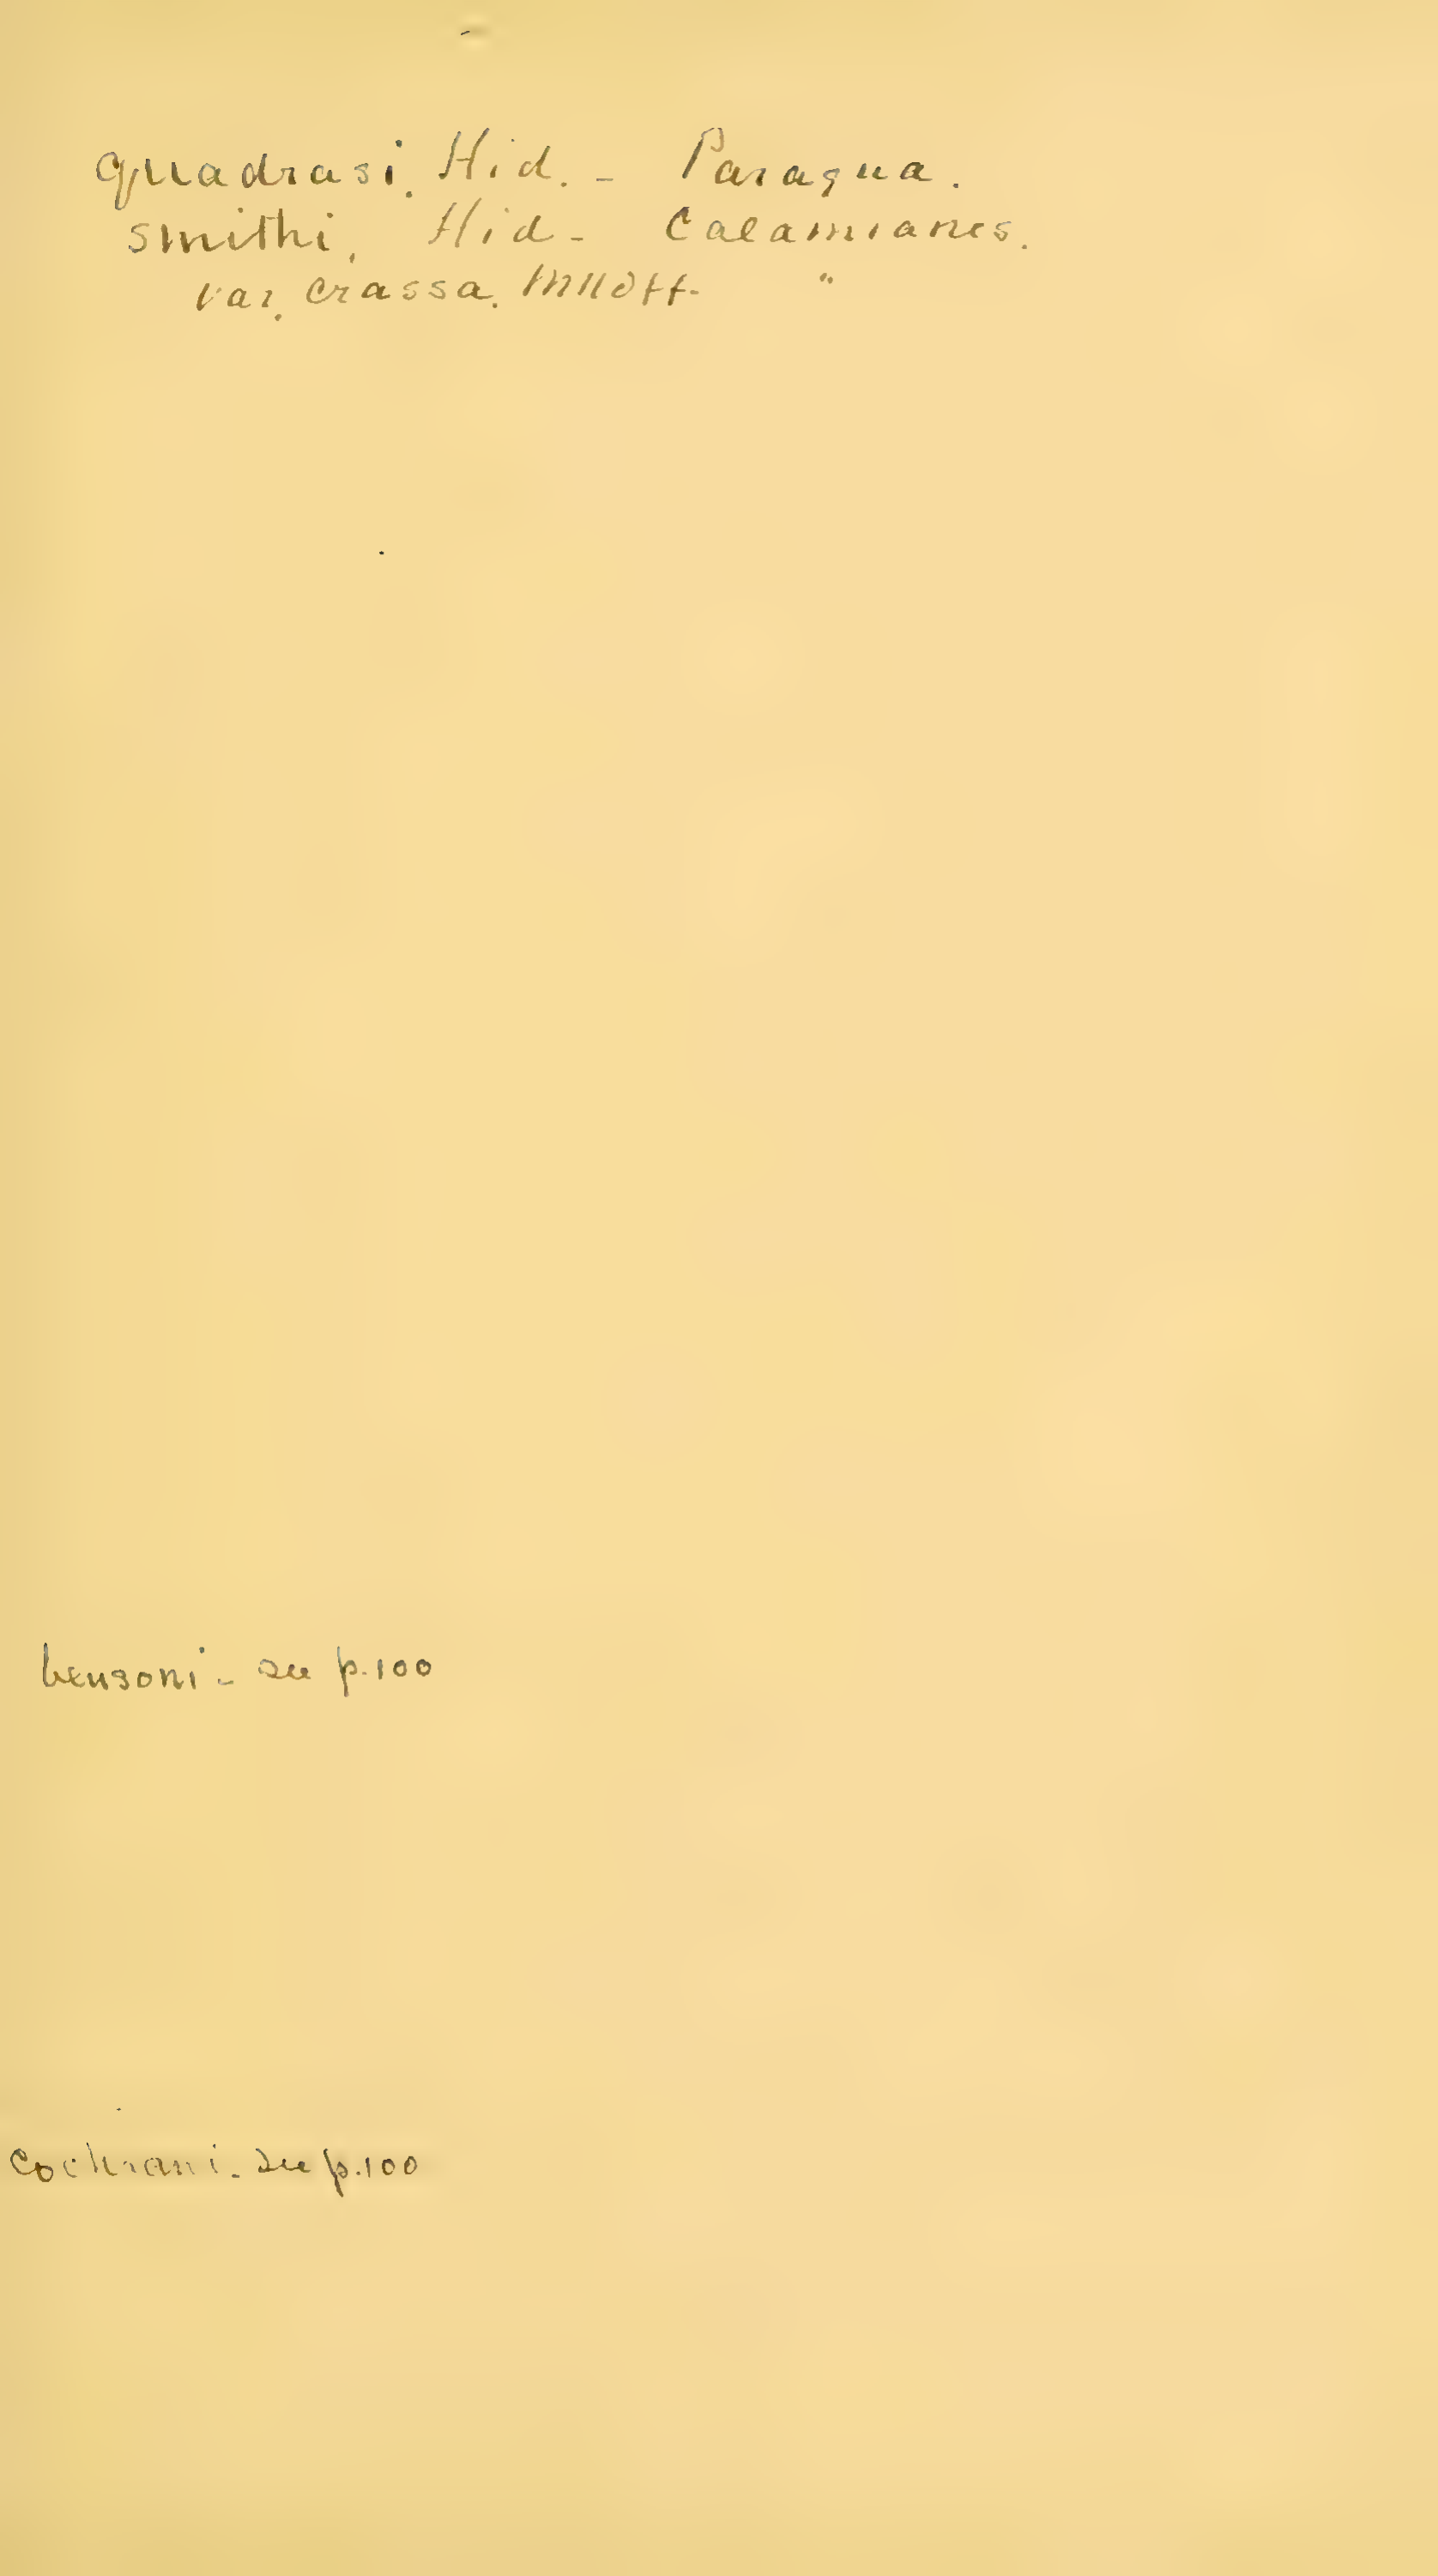 quadrasi. Hid. - Paragua.
smithi, Hid - Calamianes.
var. crassa. Mlldff - "
bensoni - see p.100
Cochrani - see p.100